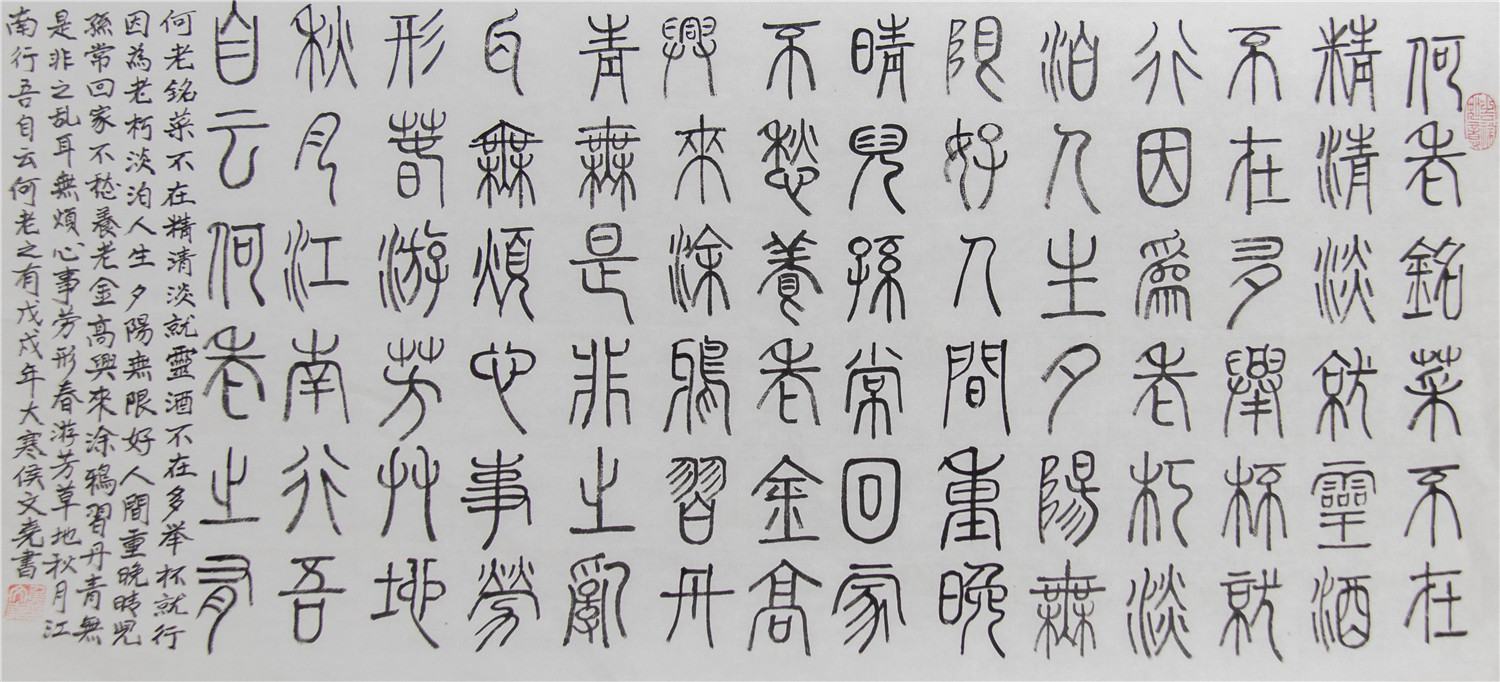 何老銘菜不在
精清淡就靈酒
不在多舉杯就
行因爲老朽淡
泊人生夕陽無
限好人間重晚
晴兒孫常回家
不愁養老金高
興來涂鴉習丹
青無是非之亂
耳無煩心事勞
形春游芳艸地
秋月江南行吾
自云何老之有
何老銘菜不在精清淡就靈酒不在多举杯就行
因為老朽淡泊人生夕陽無限好人間重晚晴児
孫常回家不愁養老金高興來涂鴉習丹青無
是非之乱耳無煩心事劳形春游芳草地秋月江
南行吾自云何老之有戊戌年大寒侯文尭書